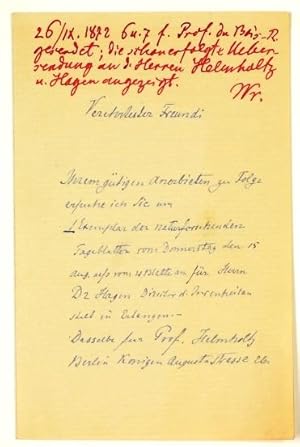 26/IX. 1872 6 u. 7 f. Prof. du Bois-R.
gesendet; die schon erfolgte Ueber-
sendung an d. Herren Helmholtz
u. Hagen angezeigt.
Wr.
Verehrtester Freund!
Ihrem gütigen Anerbieten zu Folge
ersuche ich Sie um
1 Exemplar des naturforschenden
Tageblattes vom Donnerstag den 15
Aug. für Herrn
Dr Hagen Director d. Irrenheilan
stalt in Erlangen.—
Dasselbe für Prof. Helmholtz
Berlin Königin Augustastrasse